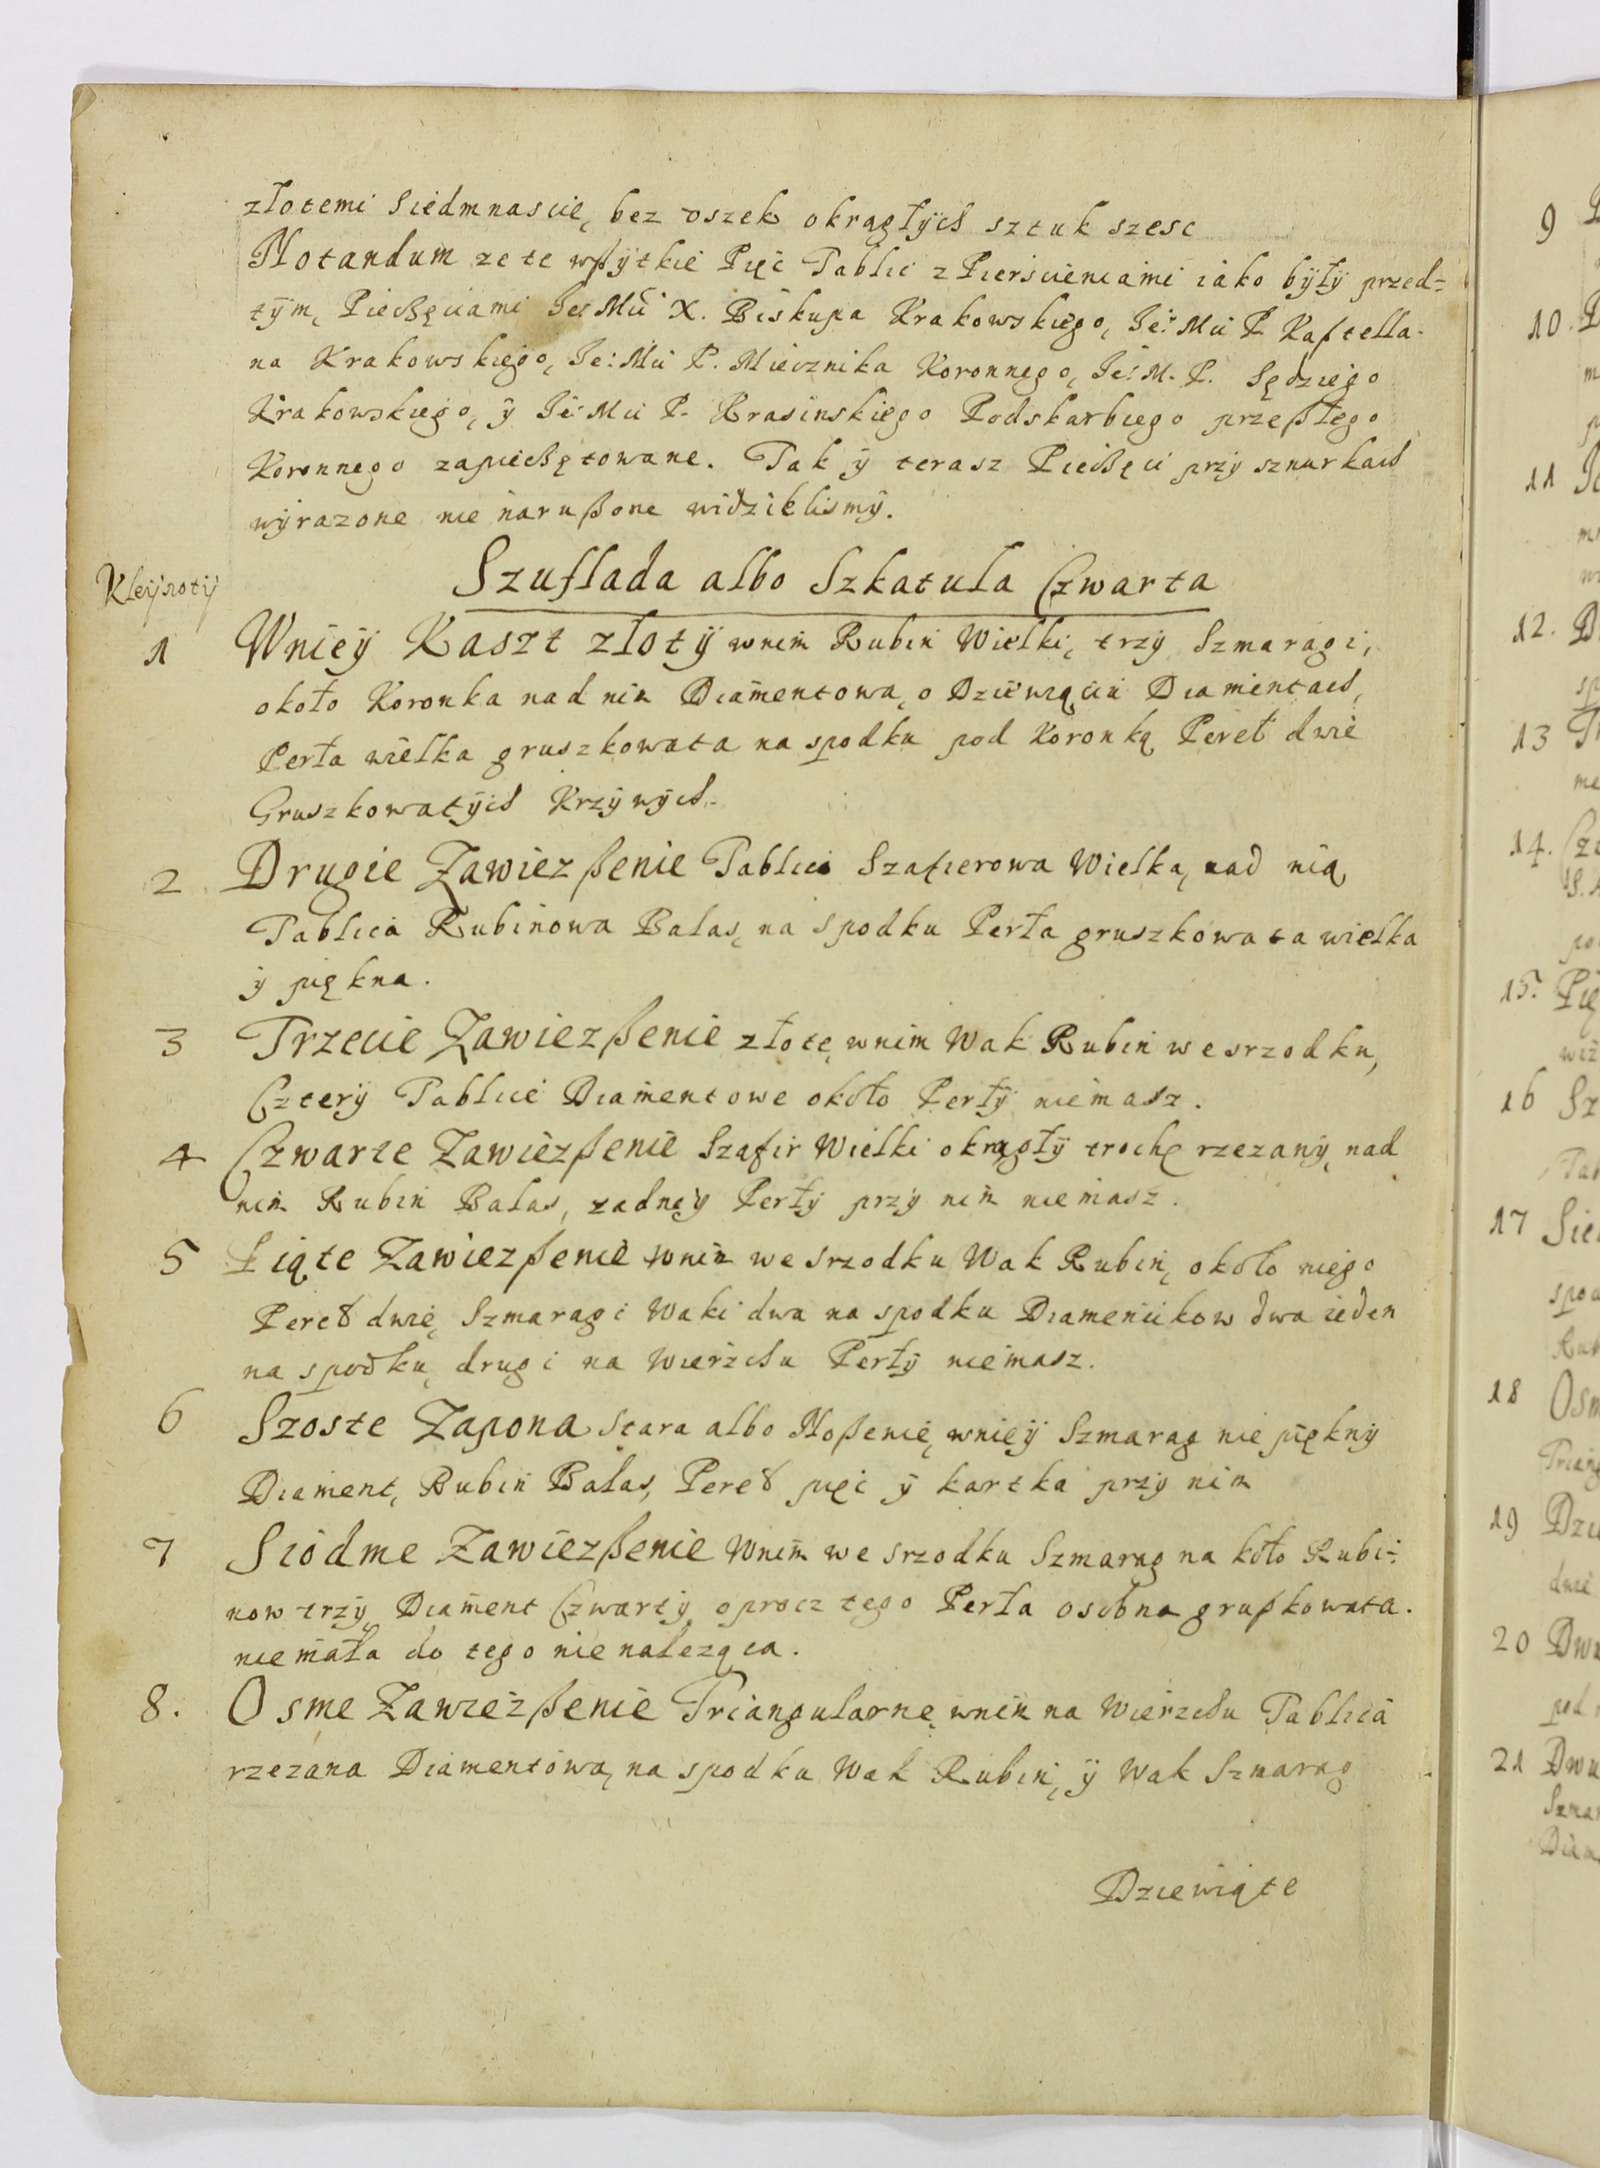 złotemi siedmnascie, bez oszek okrągłÿch sztuk szesc
Notandum ze te wßÿtkie Pięć Tablic z Pierscieniami iako bÿłÿ przed=
tÿm, Pieczęciami Je: Mci X. Biskupa Krakowskiego, Je: Mci P. Kasztella-
na Krakowskiego, Je: Mci P. Miecznika Koronnego, Je: M. P. Sędziego
Krakowskiego, ÿ Je: Mci P. Krasinskiego Podskarbiego przeßłego
Koronnego zapieczętowane. Tak ÿ terasz Pieczęci przÿ sznurkach
wÿrazone nie narußone widzielismÿ.
Szuflada albo Szkatuła Czwarta
Kleÿnotÿ
1 Wnieÿ Kaszt złotÿ wnim Rubin Wielki, trzÿ Szmaragi,
około Koronka nad nim Diamentowa, o Dziewiąciu Diamentach,
Perła wielka gruszkowata na spodku pod Koronką Pereł dwie
Gruszkowatÿch Krzÿwÿch.
2 Drugie Zawiezßenie Tablica Szafierowa Wielka, nad nią
Tablica Rubinowa Balas, na spodku Perła gruszkowata wielka
ÿ piękna.
3 Trzecie Zawiezßenie złote, wnim Wak Rubin we srzodku,
Czterÿ Tablice Diamentowe około Perłÿ niemasz.
4 Czwarte Zawiezßenie Szafir Wielki okrągłÿ trochę rzezanÿ, nad
nim Rubin Balas, zadneÿ Perłÿ przÿ nim niemasz.
5 Piąte Zawiezßenie wnim we srzodku Wak Rubin, około niego
Pereł dwie, Szmaragi Waki dwa na spodku Diamencikow dwa ieden
na spodku, drugi na Wierzchu Perłÿ niemasz.
6 Szoste Zapona stara albo Noßenie, wnieÿ Szmarag nie pięknÿ
Diament, Rubin Balas, Pereł pięć ÿ kartka przÿ nim
7 Siodme Zawiezßenie Wnim we srzodku Szmarag na koło Rubi=
now trzÿ, Diament Czwartÿ, oprocz tego Perła osobna grußkowata.
niemała do tego nie naleząca.
8. Osme Zawiezßenie Triangularne, wnim na Wierzchu Tablica
rzezana Diamentowa, na spodku Wak Rubin, ÿ Wak Szmarag
Dziewiąte
9
10.
11
12.
13
14.
15.
16 Sz
17 Sie
18 Osm
19 Dzie
20 Dwu
21 Dwu